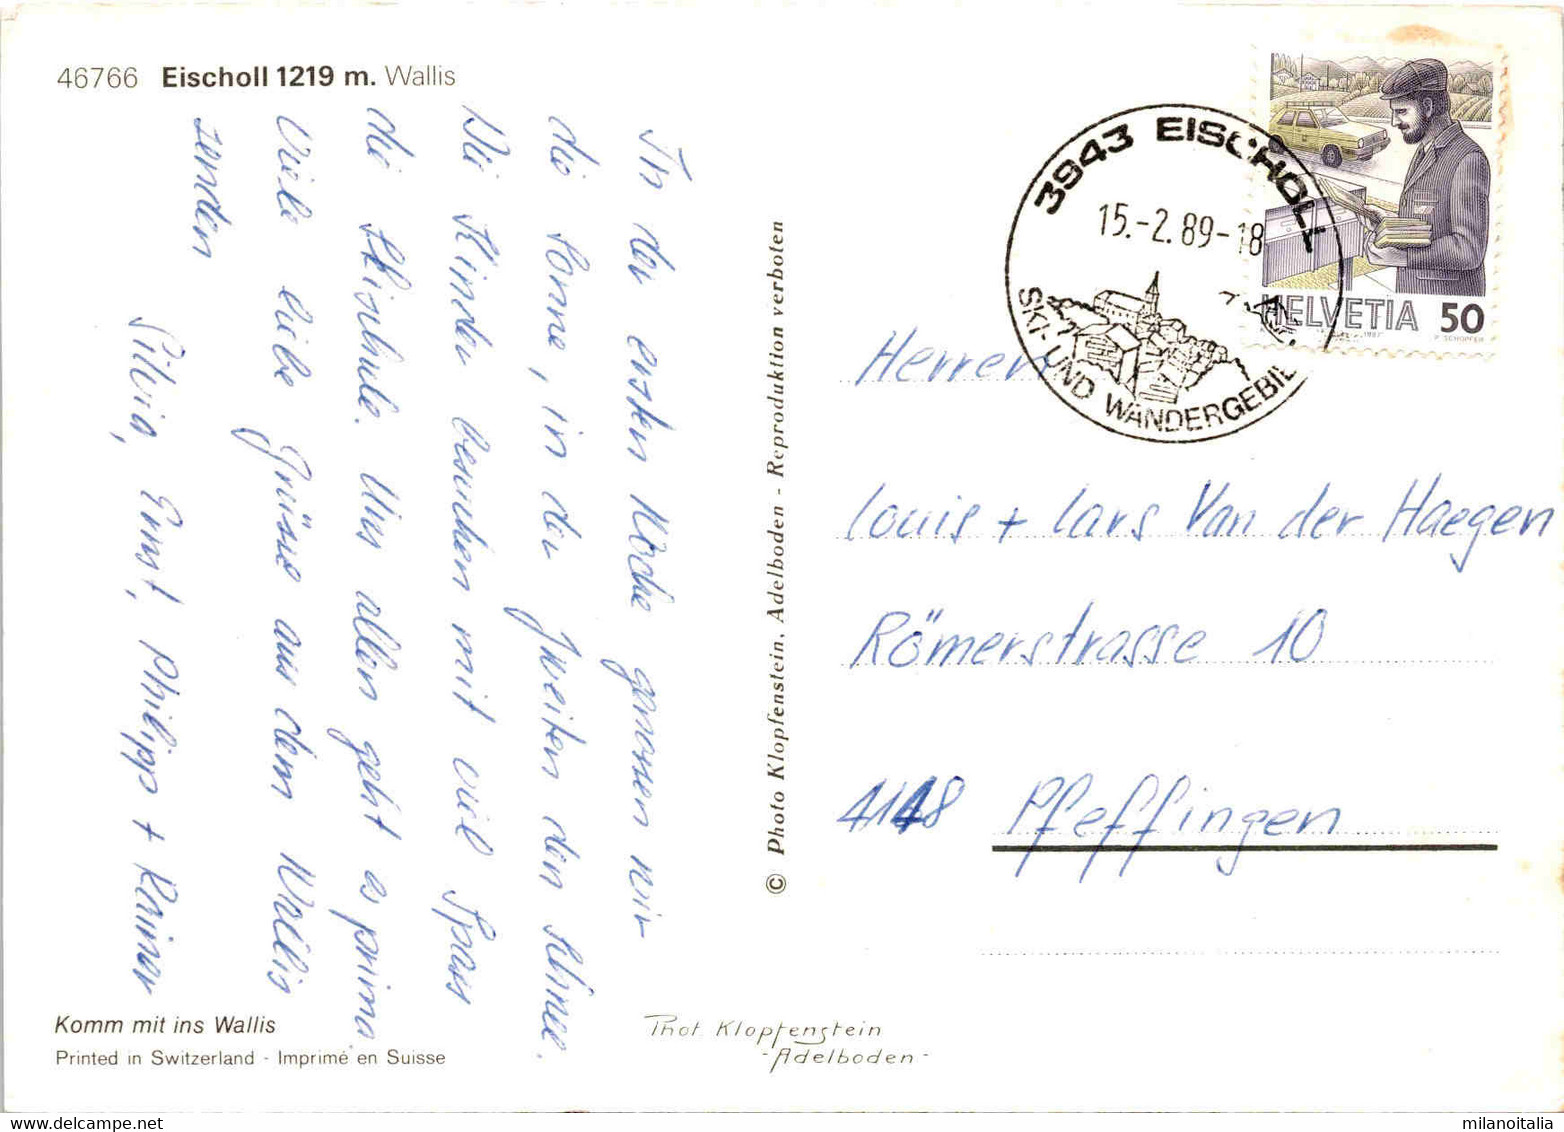 46766 Eischoll 1219 m. Wallis
In der ersten Woche genossen wir
die Sonne, in der zweiten den Schnee.
Die Kinder besuchen mit viel Spass
die Skischule. Uns allen geht es prima.
Viele liebe Grüsse aus dem Wallis
senden
Silvia, Ernst, Philipp + Rainer
Komm mit ins Wallis
Printed in Switzerland - Imprimé en Suisse
© Photo Klopfenstein, Adelboden - Reproduktion verboten
Phot. Klopfenstein
- Adelboden -
3943 EISCHOLL
15.-2.89-18
SKI- UND WANDERGEBIE
HELVETIA 50
1987 P. SCHOPFER
Herren
Louis + Lars Van der Haegen
Römerstrasse 10
4148 Pfeffingen
milanoitalia